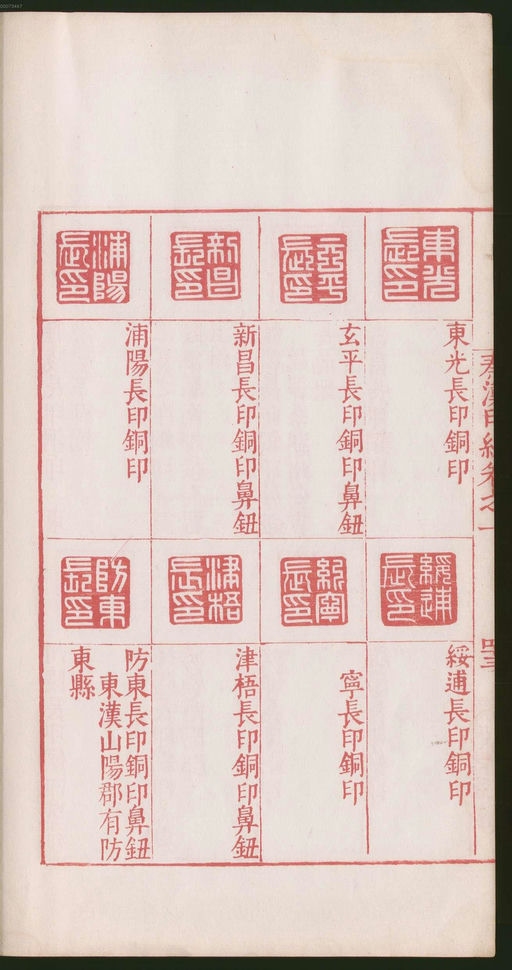 00073447
秦漢印統卷之一
四三
東光長印
東光長印銅印
玄平長印
玄平長印銅印鼻鈕
新昌長印
新昌長印銅印鼻鈕
浦陽長印
浦陽長印銅印
綏逋長印
綏逋長印銅印
寧長印
寧長印銅印
津梧長印
津梧長印銅印鼻鈕
防東長印
防東長印銅印鼻鈕
東漢山陽郡有防
東縣